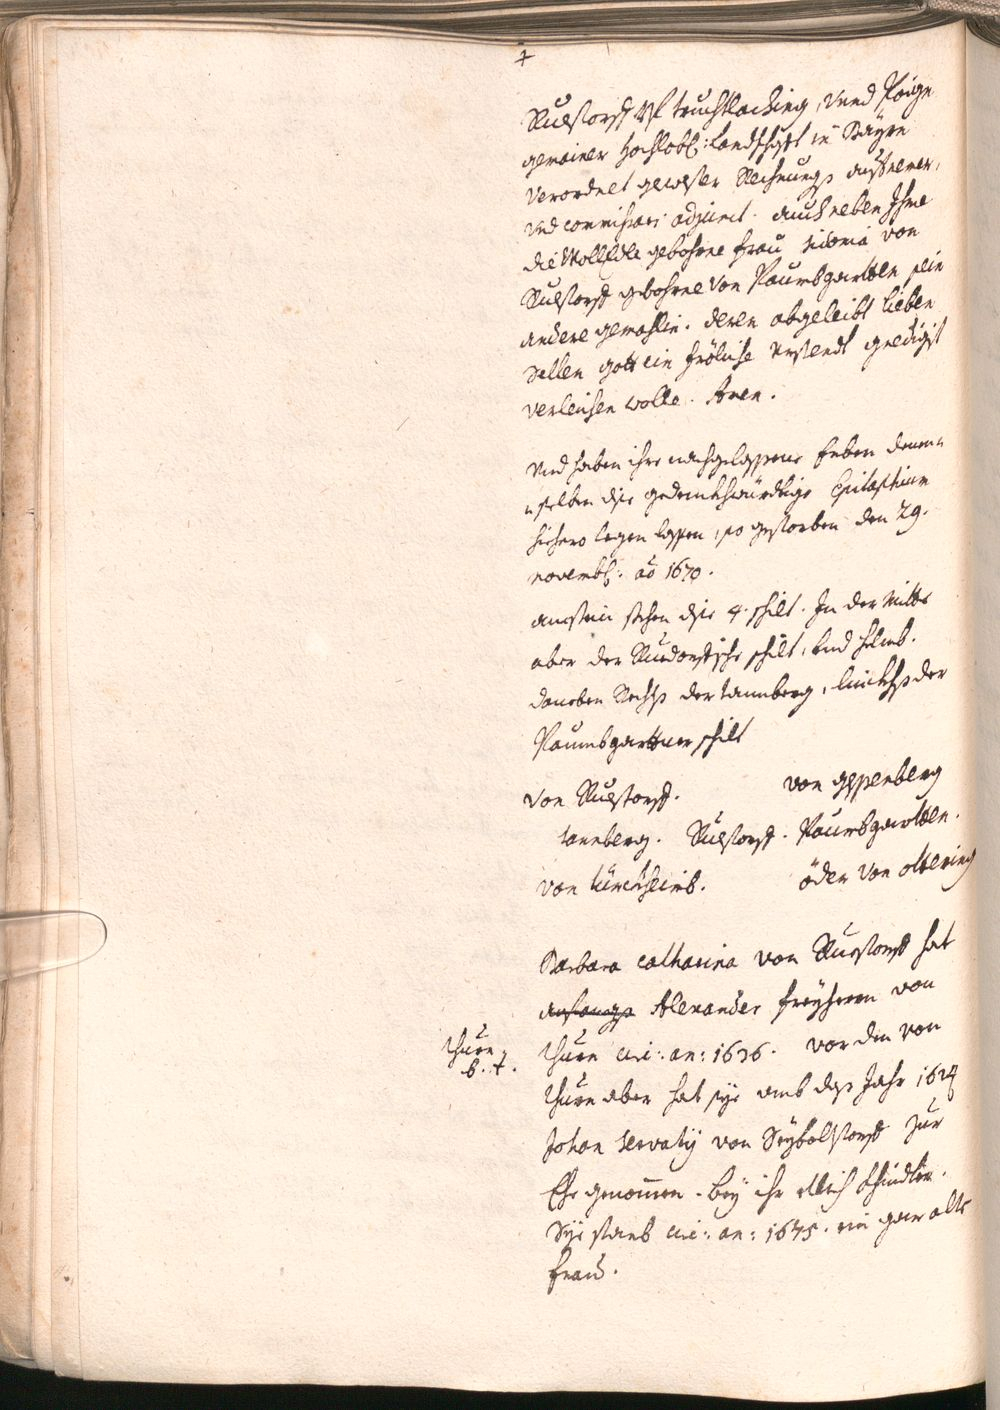 Ruestorff uf truchtlaching, Unnd
gemainer Hochlobl: Landschafft in Bayrn
verordnet gewester Rechnungs aufnemer,
und commissari adjunct. auch neben Ihme
die WollEdle gebohrne Frau von
Ruestorff gebohrne Von Paumbgartten sein
andere gemahlin. deren abgeleibt lieben
Sellen gott ein fröliche Urstendt gnedigist
verleichen wolle. Amen.
Und haben ihre nachgelassene Erben denen=
=selben dise gedenckhwürdige Epitaphium
hiehero legen lassen, so gestorben den 29.
novembr: ao 1670.
am stain stehen dise 4. schilt. In der Mitte
aber der Ruedorffische schilt, und helmb.
daneben Rechts der tannberg, linckhs der
Paumbgarttner schilt
von Ruestorff. von Appenberg
tannberg. Ruestorff. Paumbgartten.
von kürchheimb. öder von ottering
Barbara Catharina von Ruestorff hat
anfangs Alexander freyherrn von
thurn
b. t.
thurn uxi: an: 1636. vor den von
thurn aber hat sye umb das Jahr 1624
Johan Servatij von Seyboltstorff zur
Ehe genommen. bey ihr etlich khindter.
Sye starb uxi: an: 1675. ein gar alte
frau.